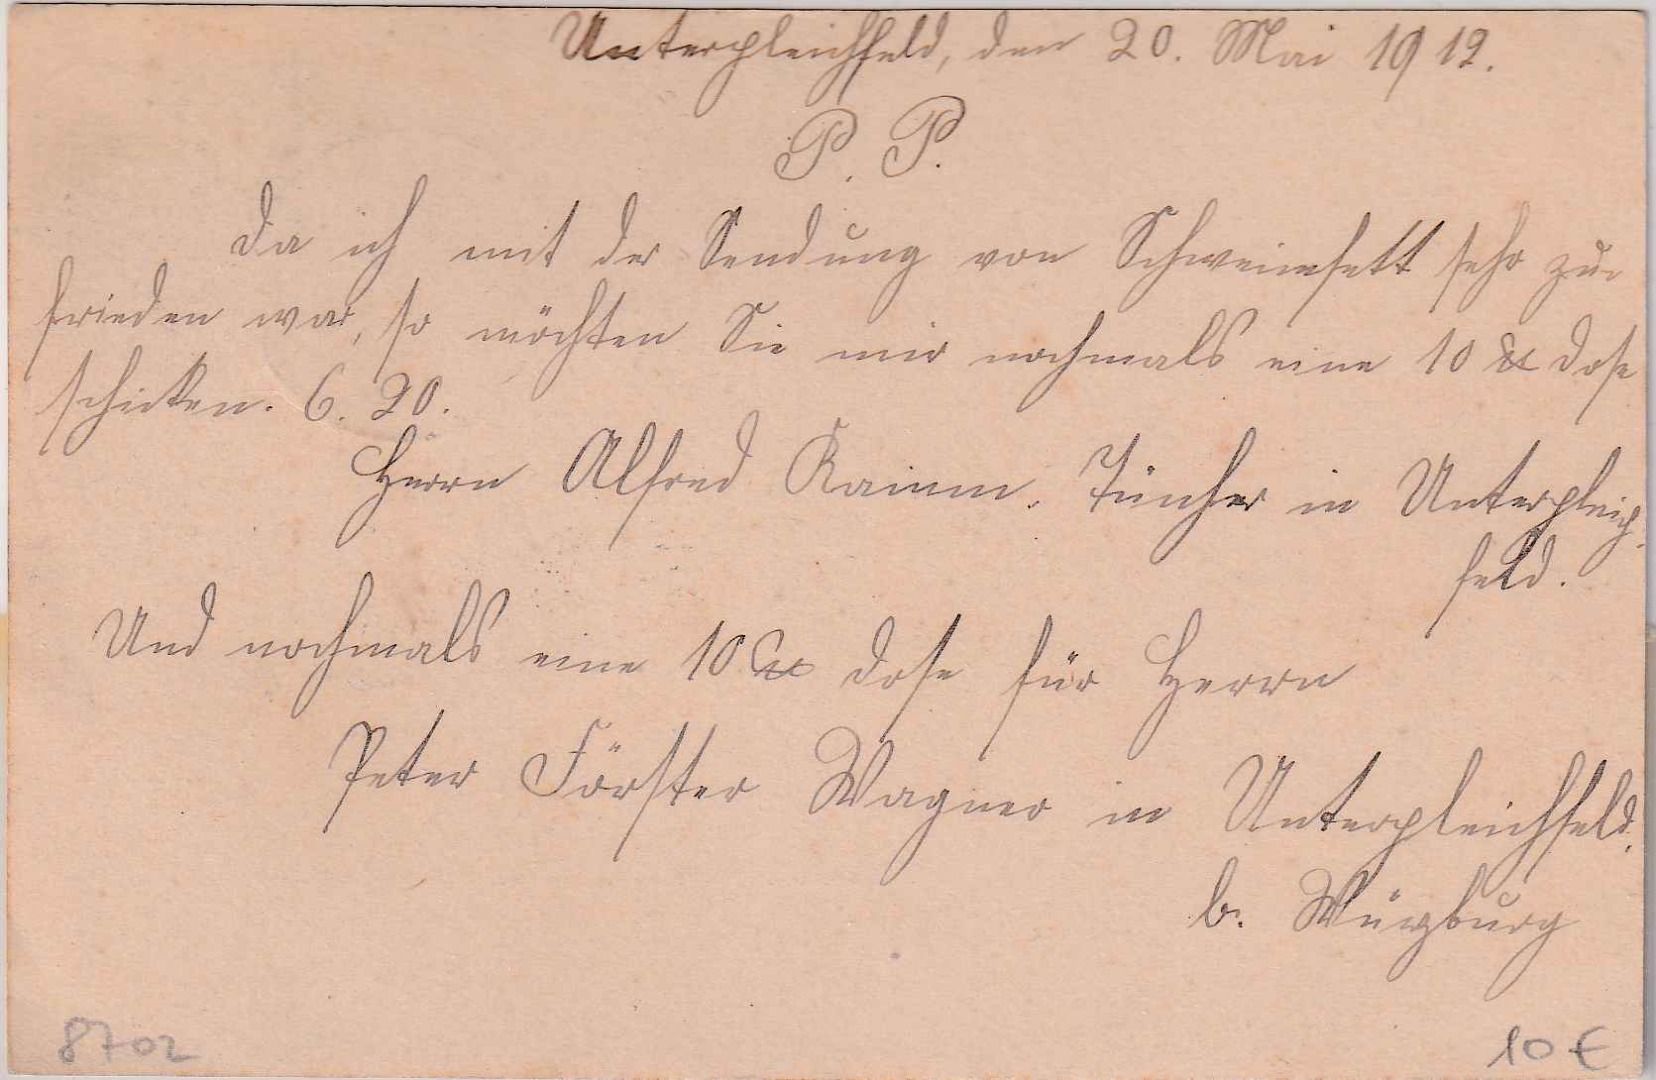 Unterpleichfeld, den 20. Mai 1912.
P. P.
Da ich mit der Sendung von Schweinefett sehr zu-
frieden war, so möchten Sie mir nochmals eine 10 ℔ Dose
schicken. 6. 20.
Herrn Alfred Kamm. Tüncher in Unterpleich-
feld.
Und nochmals eine 10 ℔ Dose für Herrn
Peter Förster Wagner in Unterpleichfeld.
b. Würzburg
8702
10 €